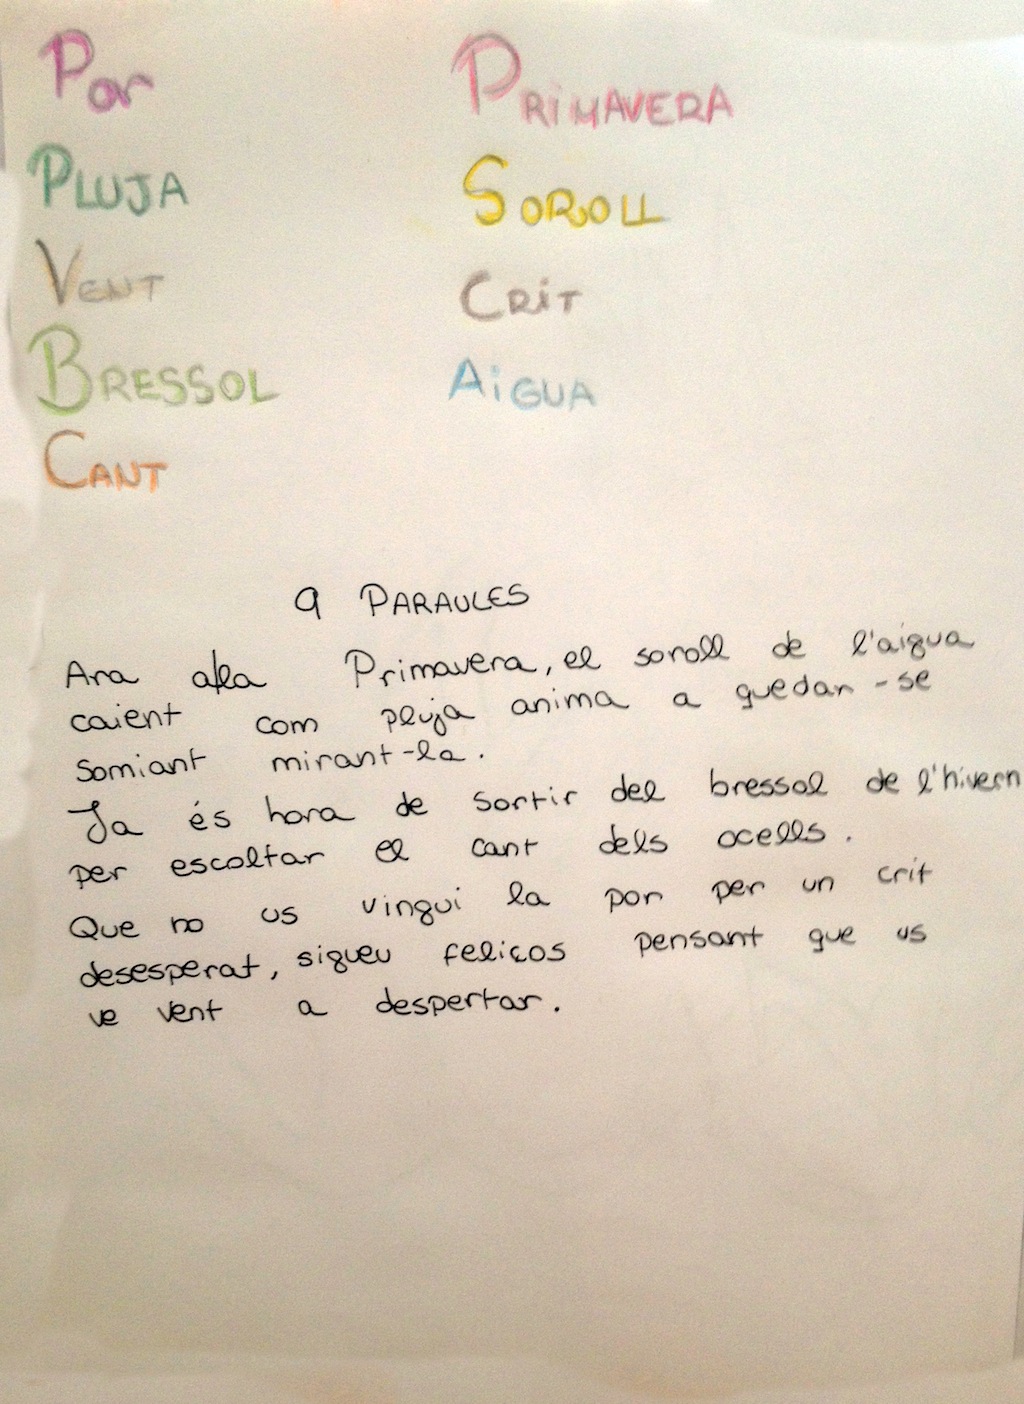 Por
PLUJA
VENT
BRESSOL
CANT
PRIMAVERA
SOROLL
CRIT
AIGUA
9 PARAULES
Ara a la Primavera, el soroll de l'aigua
caient com pluja anima a quedar-se
somiant mirant-la.
Ja és hora de sortir del bressol de l'hivern
per escoltar el cant dels ocells.
Que no us vingui la por per un crit
desesperat, sigueu feliços pensant que us
ve vent a despertar.